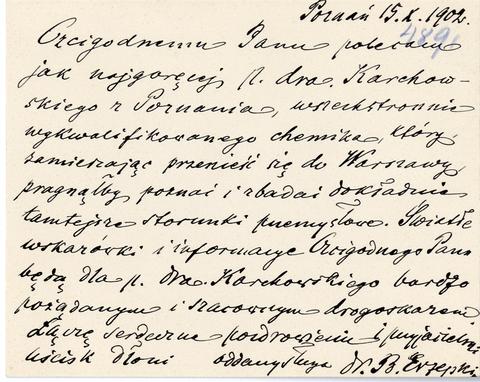 Poznań 15.X.1902.
489
Czcigodnemu Panu polecam
jak najgoręcej p. dra. Karchow-
skiego z Poznania, wszechstronnie
wykwalifikowanego chemika, który,
zamierzając przenieść się do Warszawy,
pragnąłby poznać i zbadać dokładnie
tamtejsze stosunki przemysłowe. Światłe
wskazówki i informacye Czcigodnego Pana
będą dla p. dra. Karchowskiego bardzo
pożądanym i szacownym drogoskazem
Łączę serdeczne pozdrowienie i przyjacielski
uścisk dłoni oddany sługa dr. B. Erzepki